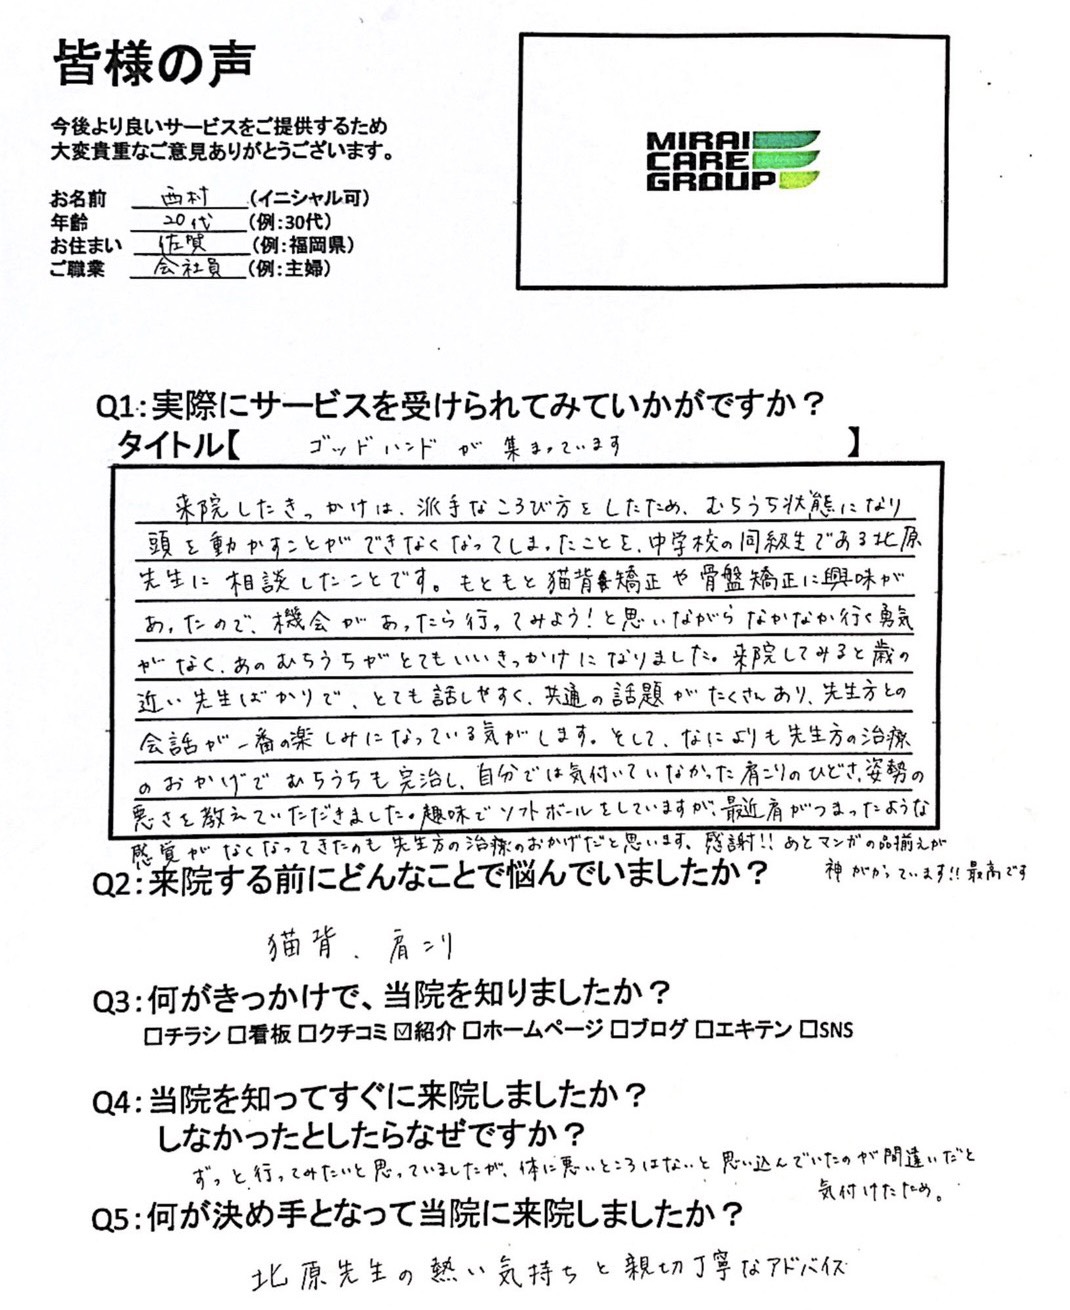 皆様の声
今後より良いサービスをご提供するため
大変貴重なご意見ありがとうございます。
お名前 西村 (イニシャル可)
年齢 20代 (例:30代)
お住まい 佐賀 (例:福岡県)
ご職業 会社員 (例:主婦)
MIRAI
CARE
GROUP
Q1:実際にサービスを受けられてみていかがですか?
タイトル【 ゴッドハンドが集まっています 】
来院したきっかけは、派手なころび方をしたため、むちうち状態になり
頭を動かすことができなくなってしまったことを、中学校の同級生である北原
先生に相談したことです。もともと猫背矯正や骨盤矯正に興味が
あったので、機会があったら行ってみよう!と思いながらなかなか行く勇気
がなく、あのむちうちがとてもいいきっかけになりました。来院してみると歳の
近い先生ばかりで、とても話しやすく、共通の話題がたくさんあり、先生方との
会話が一番の楽しみになっている気がします。そして、なによりも先生方の治療
のおかげでむちうちも完治し、自分では気付いていなかった肩こりのひどさ、姿勢の
悪さを教えていただきました。趣味でソフトボールをしていますが、最近肩がつまったような
感覚がなくなってきたのも先生方の治療のおかげだと思います。感謝!!あとマンガの品揃えが
神がかっています!!最高です
Q2:来院する前にどんなことで悩んでいましたか?
猫背、肩こり
Q3:何がきっかけで、当院を知りましたか?
□チラシ □看板 □クチコミ ☑紹介 □ホームページ □ブログ □エキテン □SNS
Q4:当院を知ってすぐに来院しましたか?
しなかったとしたらなぜですか?
ずっと行ってみたいと思っていましたが、体に悪いところはないと思い込んでいたのが間違いだと
気付けたため。
Q5:何が決め手となって当院に来院しましたか?
北原先生の熱い気持ちと親切丁寧なアドバイス